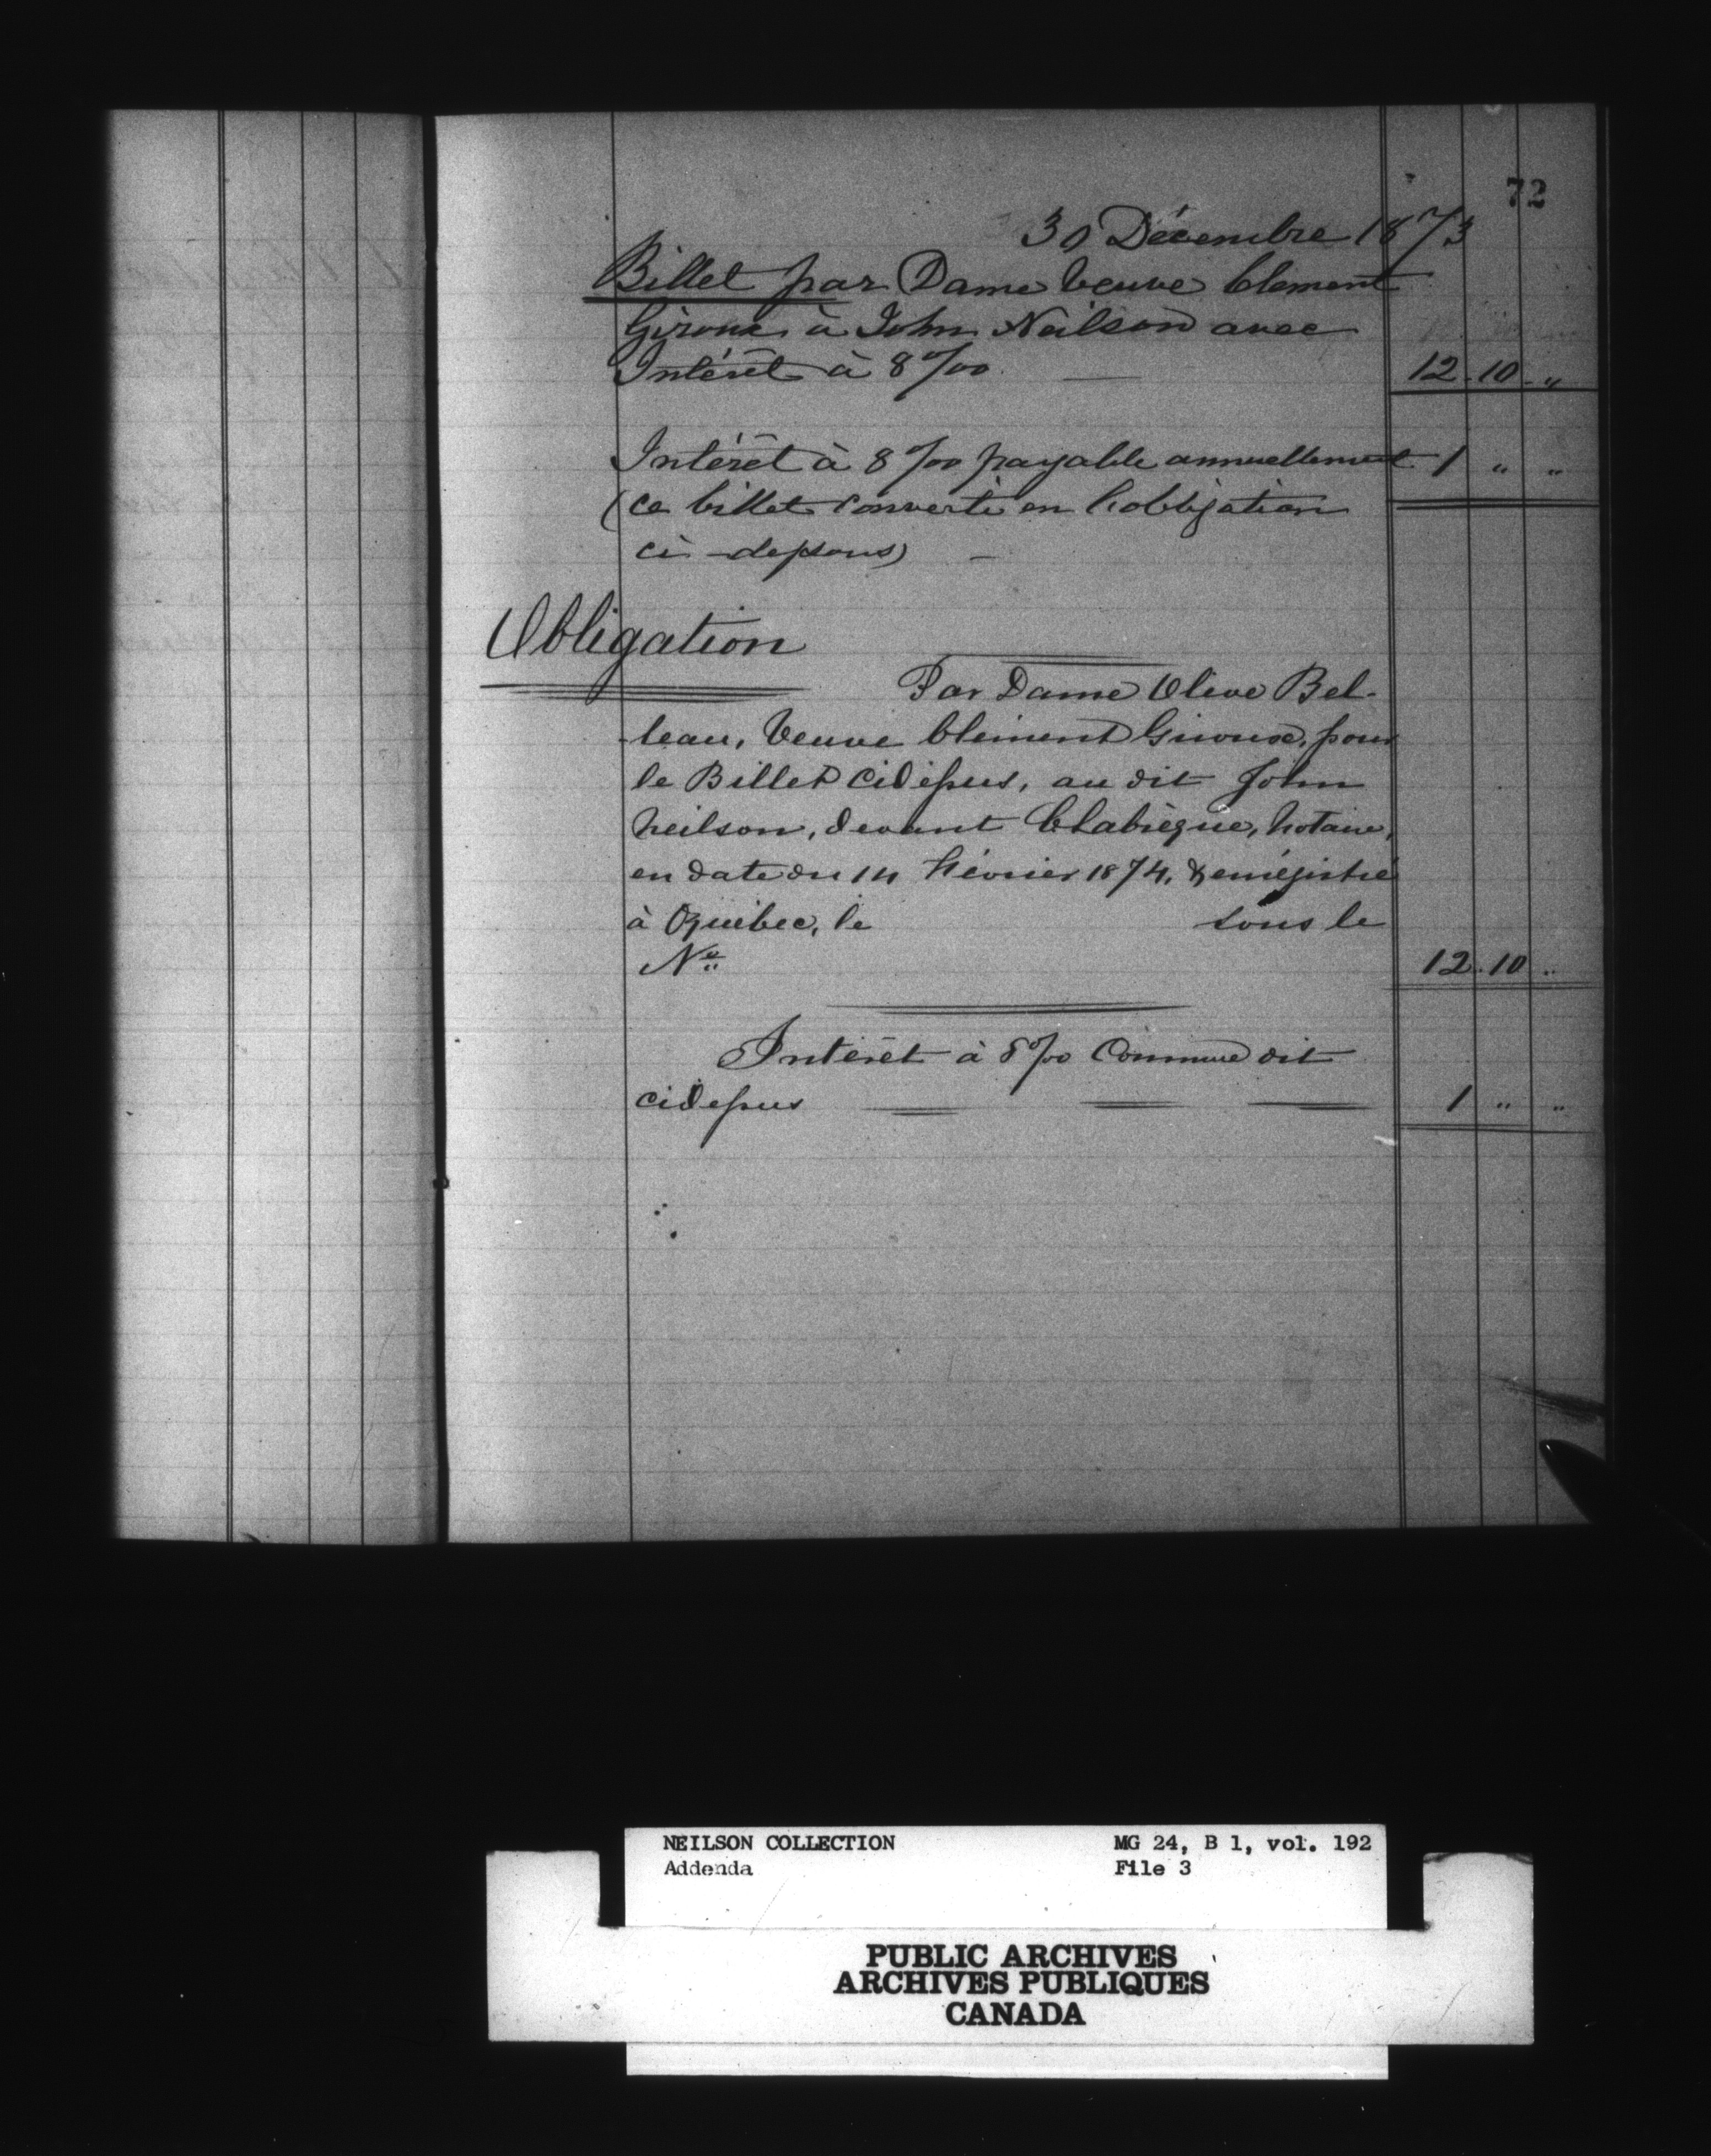 72
30 Décembre 1873
Billet par Dame Veuve Clement
Giroux à John Neilson avec
Intérêt à 8 %0 — 12 . 10 . "
Intérêt à 8 %0 payable annuellement 1 " "
(ce billet converti en l'obligation
ci-dessous) —
Obligation
Par Dame Olive Bel-
leau, Veuve Clément Giroux, pour
le Billet cidessus, au dit John
Neilson, devant Labrègue, Notaire,
en date du 14 Février 1874, & enrégistré
à Québec, le sous le
No. 12 . 10 "
Intérêt à 8 %0 Comme dit
cidessus 1 " "
NEILSON COLLECTION MG 24, B 1, vol. 192
Addenda File 3
PUBLIC ARCHIVES
ARCHIVES PUBLIQUES
CANADA